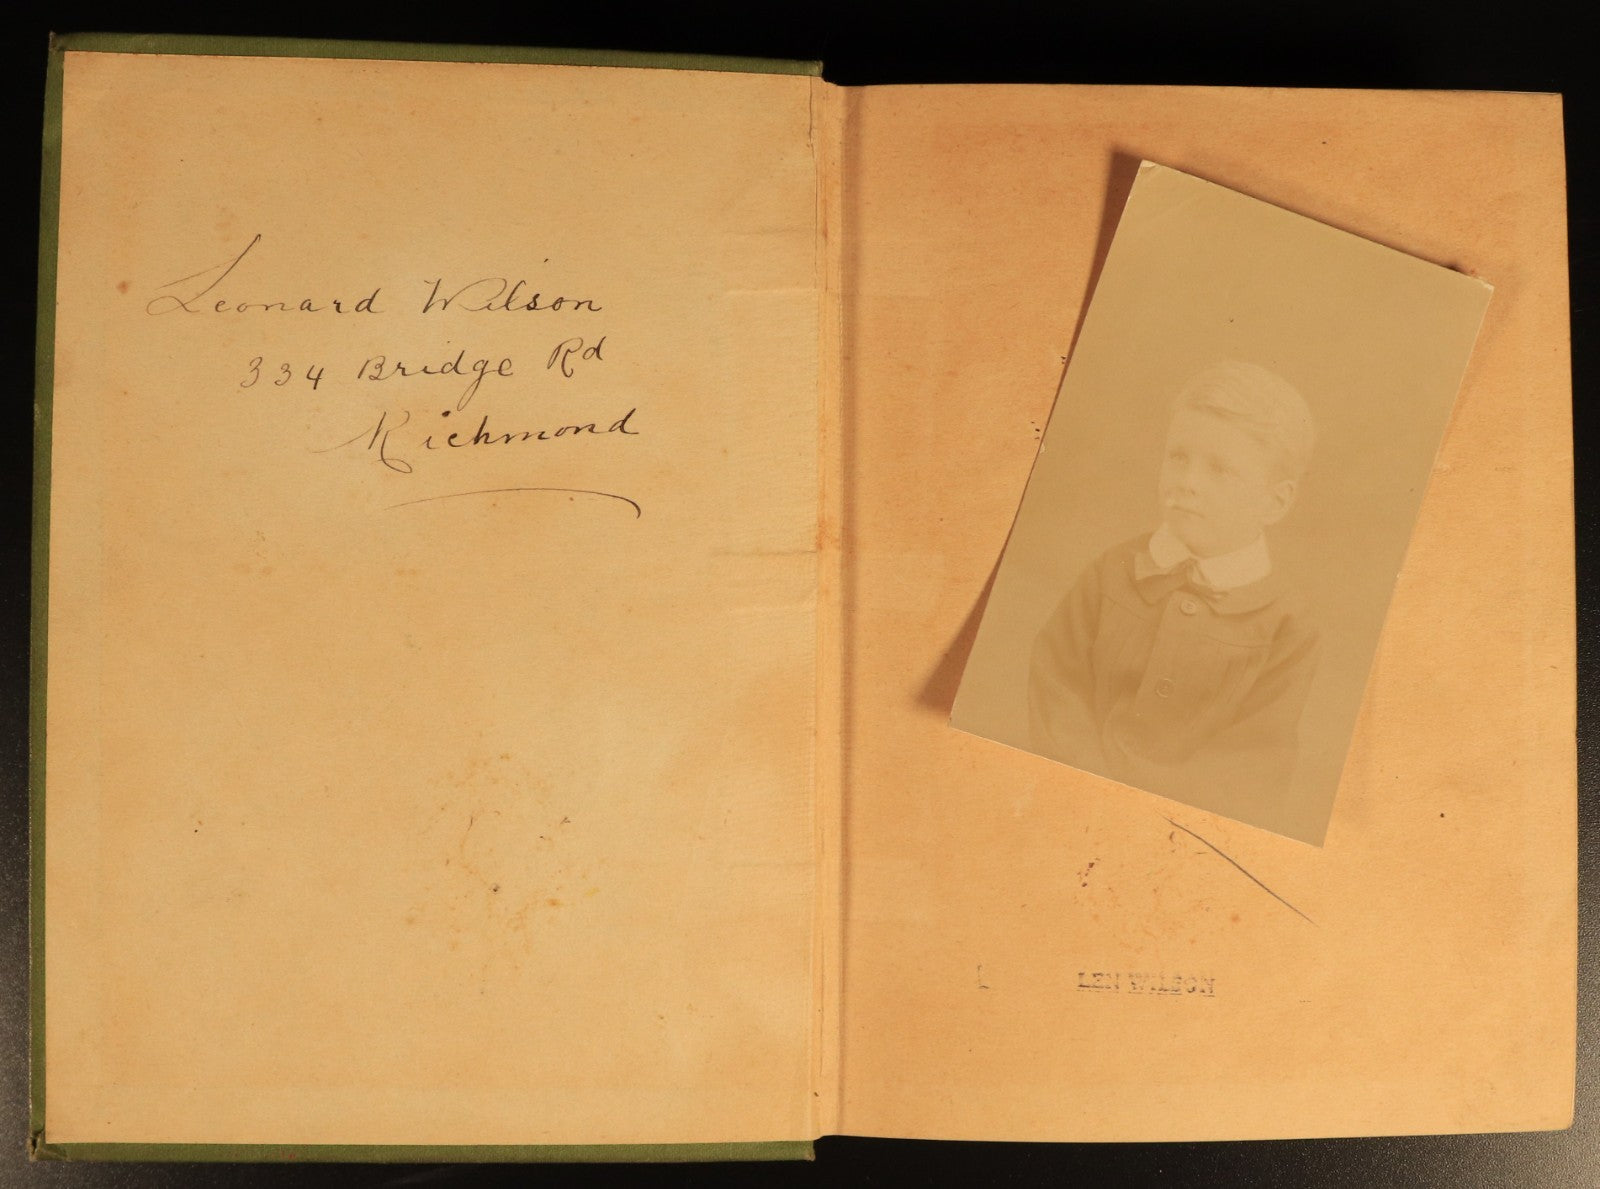 Leonard Wilson
334 Bridge Rd
Richmond
LEN WILSON